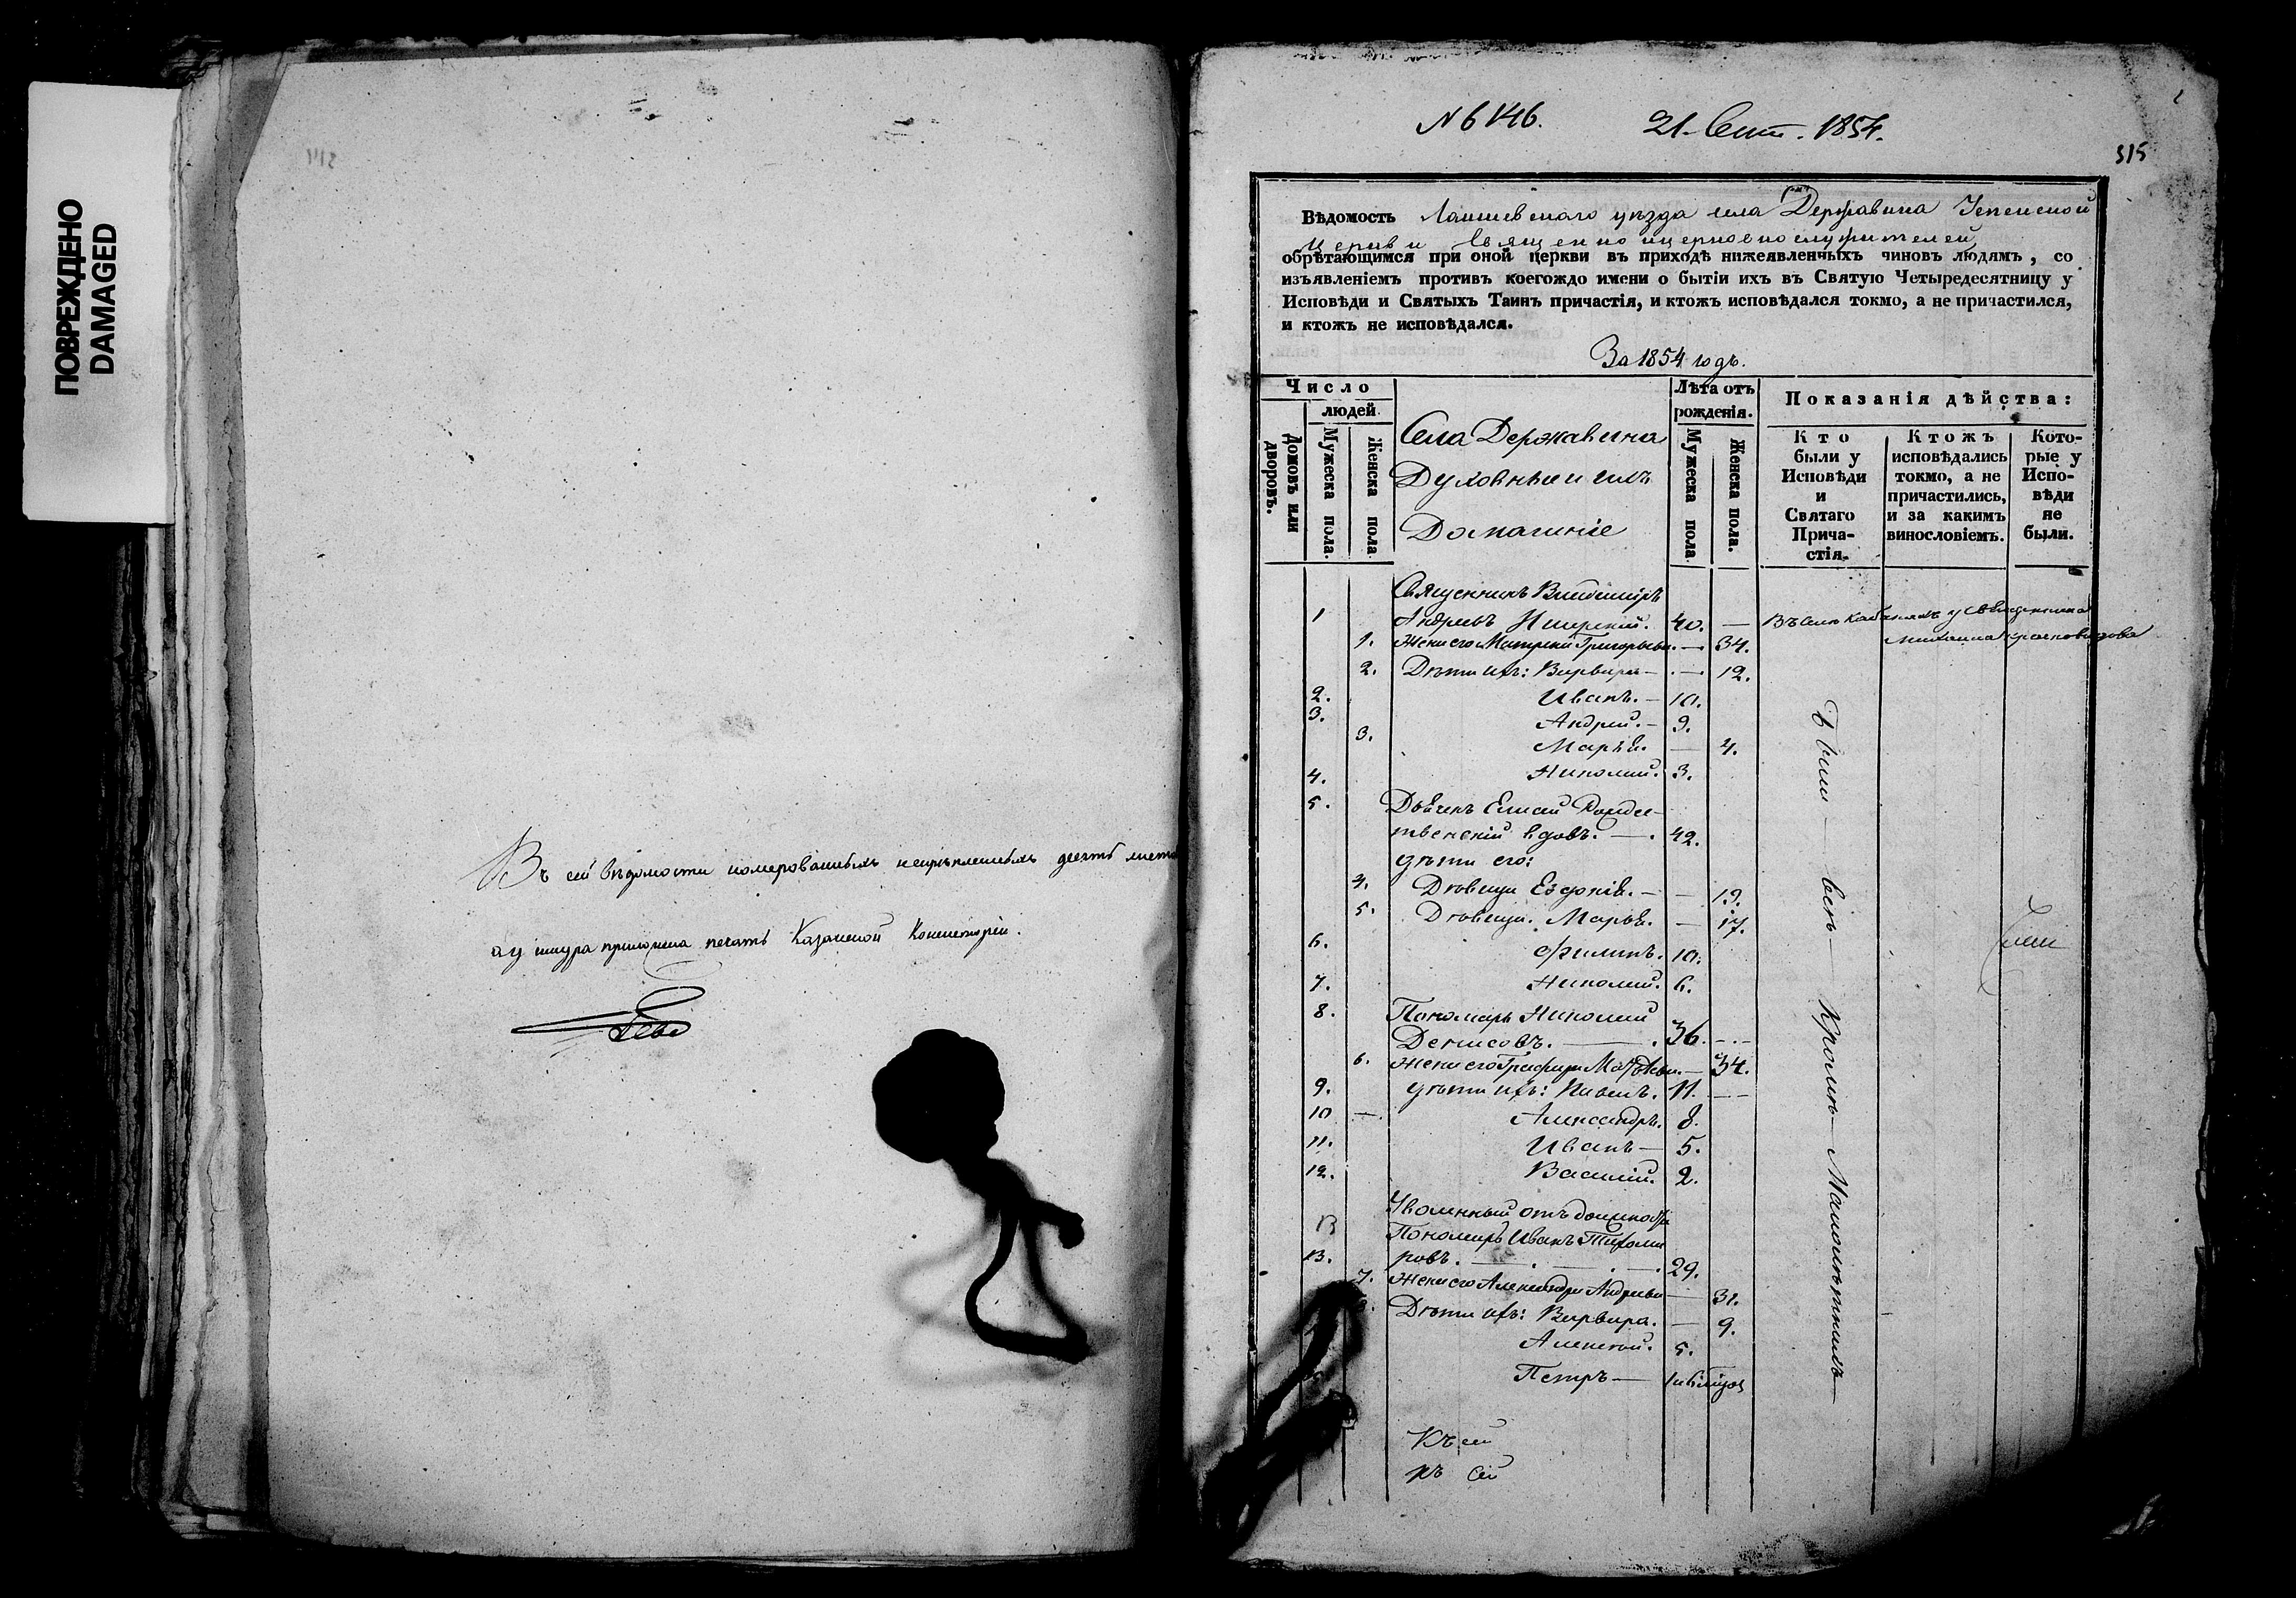 ПОВРЕЖДЕНО
DAMAGED
Въ сей вѣдомости номерованныхъ неприпечатныхъ десять листовъ
а у шнура приложена печать Казанской Консисторіи.
№ 6146. 21 Сент. 1854.
315
Вѣдомость Лаишевскаго уѣзда села Державина Успенской
церкви священно и церковнослужителей
обрѣтающимся при оной церкви въ приходѣ нижеявленныхъ чиновъ людямъ, со
изъявленіемъ противъ коегождо имени о бытіи ихъ въ Святую Четыредесятницу у
Исповѣди и Святыхъ Таинъ причастія, и ктожъ исповѣдался токмо, а не причастился,
и ктожъ не исповѣдался.
За 1854 годъ.
Число
людей.
Домовъ или дворовъ.
Мужеска пола.
Женска пола
Села Державина
Духовные и ихъ
Домашніе
Лѣта отъ
рожденія.
Мужеска пола
Женска пола.
Показанія дѣйства:
Кто
были у
Исповѣди
и
Святаго
Прича-
стія.
Ктожъ
исповѣдались
токмо, а не
причастились,
и за какимъ
винословіемъ.
Кото-
рые у
Испо-
вѣди
не
были.
Священникъ Владиміръ
1 Андреевъ 40. — Въ селѣ Кабанахъ у священника
Михаила Красновидова
1. Жена его Матрена Григорьева. — 34.
2. Дѣти ихъ: Варвара — 12.
2. Иванъ. — 10.
3. Андрей. — 9.
3. Марья. — 4.
4. Николай. 3.
5. Дьячекъ Елисей Рождес-
твенскій вдовъ. — 42.
дѣти его:
4. Дѣвица Евдокія. — 19.
5. Дѣвица Марья. — 17.
6. Филипъ. 10.
7. Николай. 6.
8. Пономарь Николай
Денисовъ. — 36. —
6. Жена его Графира Матвѣева. — 34.
9. дѣти ихъ: Павелъ. 11. —
10 — Александръ. 8.
11. Иванъ — 5.
12. Василій. 2.
Уволенный отъ должности
13 Пономарь Иванъ Тихоми
13. ровъ. — 29.
7. Жена его Александра Андреева — 31.
8. Дѣти ихъ: Варвара. — 9.
Алексей. 5.
Петръ —
Были — всѣ — Кромѣ — Малолѣтнихъ —
Къ сей
къ сей